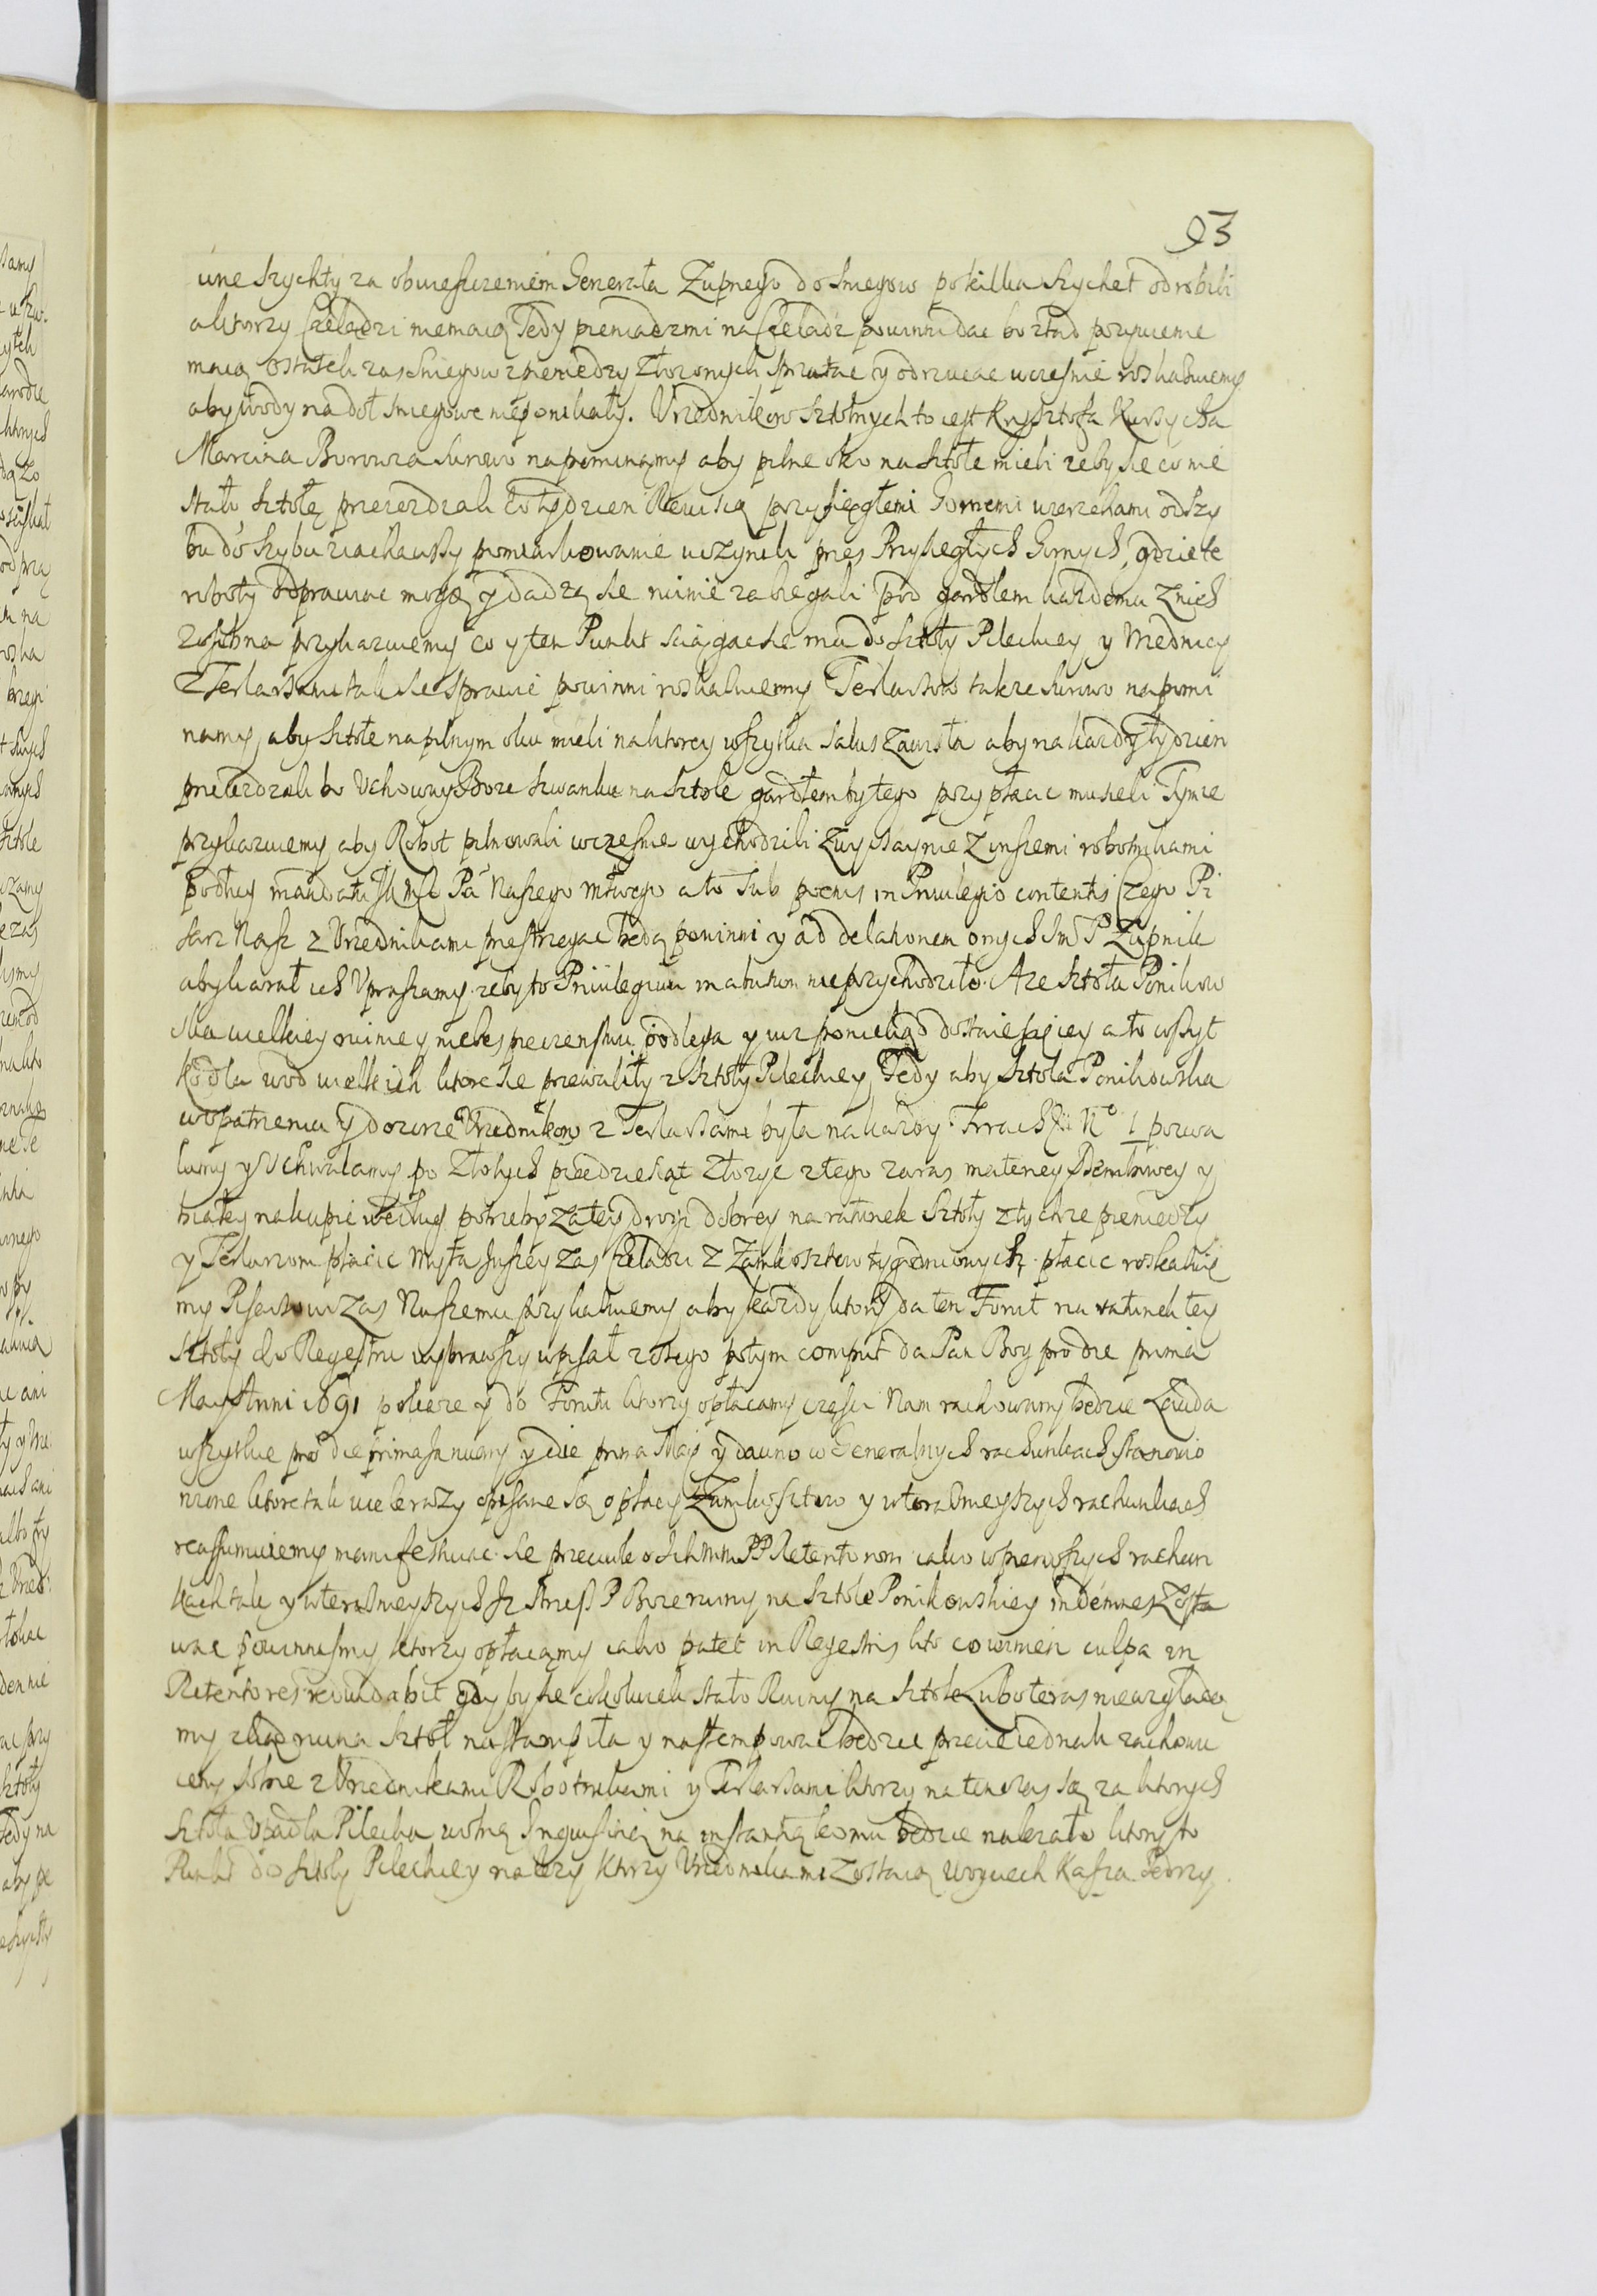 93
wne szychty za obwieszczeniem Generała Zupnego do sniegow po kilka szychet odrobili
a ktorzy Czeladzi nie maią Tedy pieniądzmi na Czeladz powinni dac bo ztąd pozywienie
maią Ostatek zas sniegow z pieniedzy złozonych sprzątac y odrzucac wczesnie roskazuiemy
aby wody na doł sniegowe nie ponikały. Vrzednikow sztolnych to iest Krysztofa
Marcina Burowza surowo napominamy aby pilne oko na sztole mieli zeby sie co nie
stało sztolę przeiezdzali Co tydzien Rewisią przysiegłemi Gornemi
bu do szybu ziachawszy pomiarkowanie uczynili przes Przysiegłych Gornych, gdzie te
roboty odprawiac mogą y dadzą sie ruinie zabiegali Pod gardłem kazdemu z nich
z osobna przykazuiemy co y ten Punkt sciągac sie ma do sztoły Pileckiey y Vrzednicy
z Terlarzami tak sie sprawic powinni roskazuiemy Terlarzow takze surowo napomi
namy, aby sztole na pilnym oku mieli na ktorey wszytka salus zawisła aby na kazdy tydzien
przeiezdzali bo Vchoway Boze szwanku na sztole gardłem by tego przypłacic musieli Tymze
przykazuiemy aby Robot pilnowali wczesnie wychodzili zwyczaynie z inszemi robotnikami
podług mandatu Pa Naszego Młwego a to sub poenis in Priuilegio contentis Czego Pi
sarz Nasz z Vrzednikami przestrzegac będą powinni y ad delationem onych Im P Zupnik
aby karał ich Vpraszamy zeby to Priuilegium in abusum nie przychodziło. A ze sztoła Ponikow
ska wielkiey ruinie y niebespieczenstwu podlega y iuz poniekąd a to wszyt
ko dla wod wielkich ktore sie przewaliły z sztoły Pileckiey Tedy aby sztola Ponikowska
w opatrzeniu y dozorze Vrzednikow z Terlarzami była na kazdy 1 pozwa
lamy y Vchwalamy po złotych piędziesiąt złozyc z tego zaras materiey Dembowey y
białey nakupic według potrzeby za tey drogi dobrey na ratunek sztoły z tychze pieniedzy
y Terlarzom płacic Myta suszey zas Czeladzi z Zamkosztow tygodniowych płacic roskazuie
my Pisarzowi zas Naszemu przykazuiemy aby kazdy ktory da ten Forszt na ratunek tey
sztoły do Regestru wybrawszy wpisał z ktorego potym comput da Pan Bog pro die prima
May Anni 1691 pokaze y do ktorzy opłacamy częsci Nam rachowany będzie Lauda
wszytkie pro die prima Ianuary y die prima Maij y dawno w Generalnych rachunkach stanowio
nione ktore tak wiele razy opisane są o płacy Zamkosztow y w teraznieyszych rachunkach
reassumuiemy manifestuiac sie przeciwko Ichmm PP Retentorom iako w pierwszych rachun
kach tak y w teraznieyszych P Boze ruiny na sztole Ponikowskiey indemnes Zosta
wac powinnismy ktorzy opłacamy iako patet in Regestris kto co winien culpa in
Retentores redundabit gdy by sie cokolwiek stało Ruiny na sztole Lubo teras
my zkąd ruina sztoł nastąmpiła y nastempowac będzie przecie iednak zachowu
iemy sobie z Vrzednikami Robotnikami y Terlarzami ktorzy na ten czas są za ktorych
sztola Vpadła Pilecka wolną Inquisitią na instantią komu będzie nalezało ktory to
Punkt do sztoły Pileckiey nalezy Ktorzy Vrzednikami zostaią Woyciech Kaszza Jedrzy